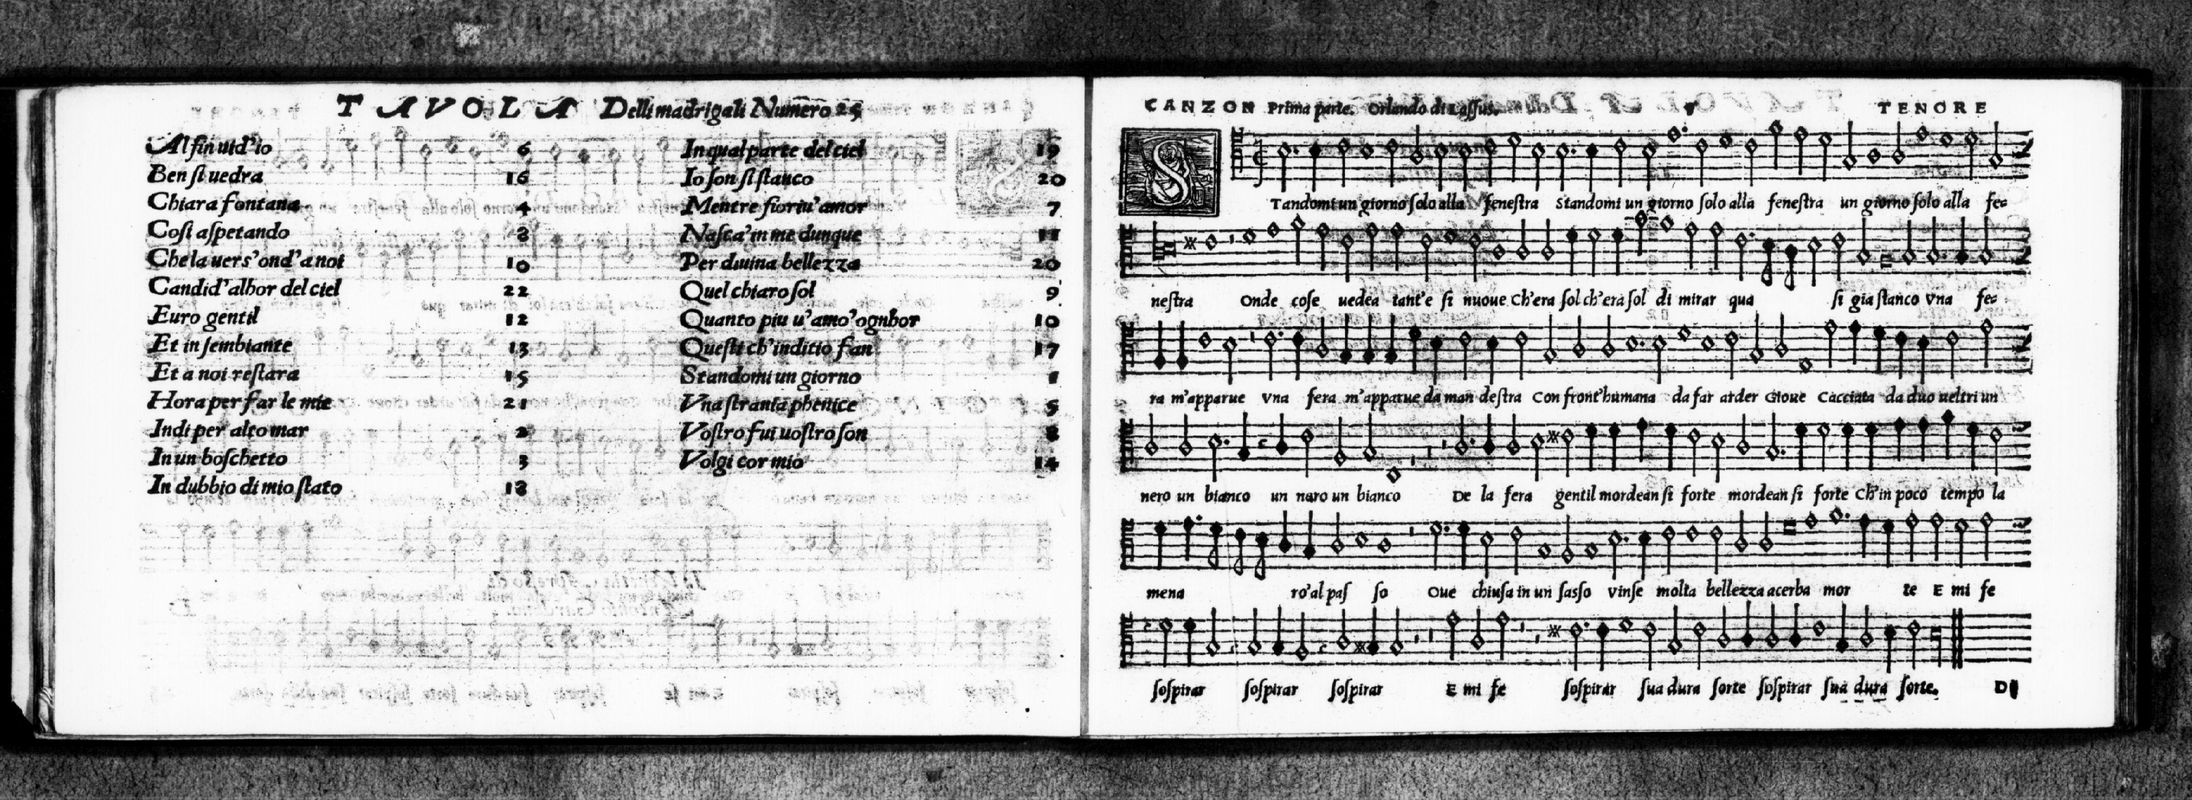 TAVOLA Delli madrigali Numero 25
Al fin uid'io 6
Ben si uedra 16
Chiara fontana 4
Cosi aspetando 8
Che la uers'ond'a noi 10
Candid'albor del ciel 22
Euro gentil 12
Et in sembiante 13
Et a noi restara 15
Hora per far le mie 21
Indi per alto mar 2
In un boschetto 3
In dubbio di mio stato 18
In qual parte del ciel 19
Io son si stanco 20
Mentre fioriu'amor 7
Nasca'in me dunque 11
Per diuina bellezza 20
Quel chiaro sol 9
Quanto piu u'amo'ognhor 10
Questi ch'inditio fan 17
Standomi un giorno 1
Vna strania phenice 5
Vostro fui uostro son 8
Volgi cor mio 14
CANZON Prima parte. Orlando di Lassus. TENORE
STandomi un giorno solo alla fenestra Standomi un giorno solo alla fenestra un giorno solo alla fe=
nestra Onde cose uedea tant'e si nuoue Ch'era sol ch'era sol di mirar qua si gia stanco Vna fe=
ra m'apparue Vna fera m'apparue da man destra Con front'humana da far arder Gioue Cacciata da duo ueltri un
nero un bianco un nero un bianco De la fera gentil mordean si forte mordean si forte Ch'in poco tempo la
mena ro'al pas so Oue chiusa in un sasso Vinse molta bellezza acerba mor te E mi fe
sospirar sospirar sospirar E mi fe sospirar sua dura sorte sospirar sua dura sorte. D